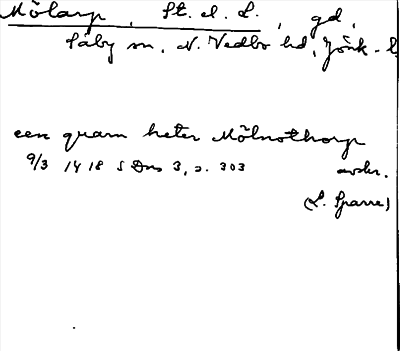 Mölarp, St. o. L., gd,
Säby sn, N. Vedbo hd, Jönk. l
een quarn heter Mölnothorp
9/3 1418 SDns 3, s. 303 avskr.
(L. Sparre)